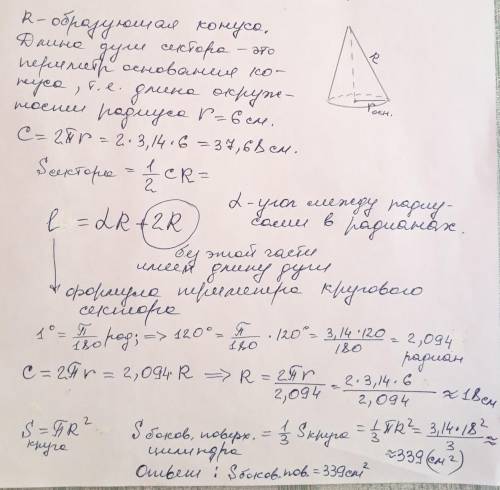 R - образующая конуса.
Длина дуги сектора - это
периметр основания ко-
нуса, т.е. длина окруж-
ности радиуса r = 6 см.
R
r осн.
C = 2πr = 2 · 3,14 · 6 = 37,68 см.
S сектора = 1/2 CR =
l = αR + 2R
α - угол между радиу-
сами в радианах.
без этой части
имеем длину дуги
формула периметра кругового
сектора
1° = π/180 рад; => 120° = π/180 · 120° = 3,14·120/180 = 2,094
радиан
C = 2πr = 2,094·R => R = 2πr/2,094 = 2·3,14·6/2,094 ≈ 18 см
S круга = πR²
S боков. поверх. цилиндра = 1/3 S круга = 1/3 πR² = 3,14·18²/3 ≈
≈ 339 (см²)
Ответ: S боков. пов. = 339 см²